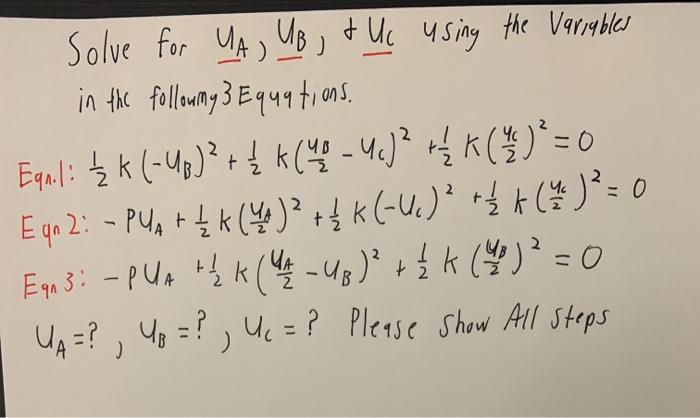 Solve for UA, UB, & UC using the Variables
in the following 3 Equations.
Eqn.1: 1/2 k (-UB)² + 1/2 k (UB/2 - UC)² + 1/2 k (UC/2)² = 0
Eqn 2: - PUA + 1/2 k (UA/2)² + 1/2 k (-UC)² + 1/2 k (UC/2)² = 0
Eqn 3: - PUA + 1/2 k (UA/2 - UB)² + 1/2 k (UB/2)² = 0
UA = ?, UB = ?, UC = ? Please Show All steps